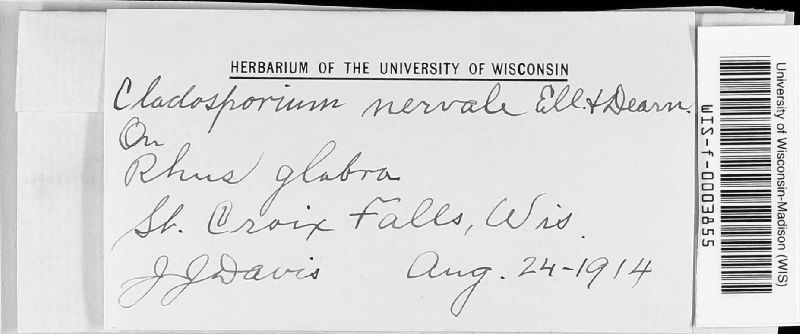 HERBARIUM OF THE UNIVERSITY OF WISCONSIN
Cladosporium nervale Ell. & Dearn.
On
Rhus glabra
St. Croix Falls, Wis.
J J Davis Aug. 24-1914
WIS-f-0003855
University of Wisconsin-Madison (WIS)